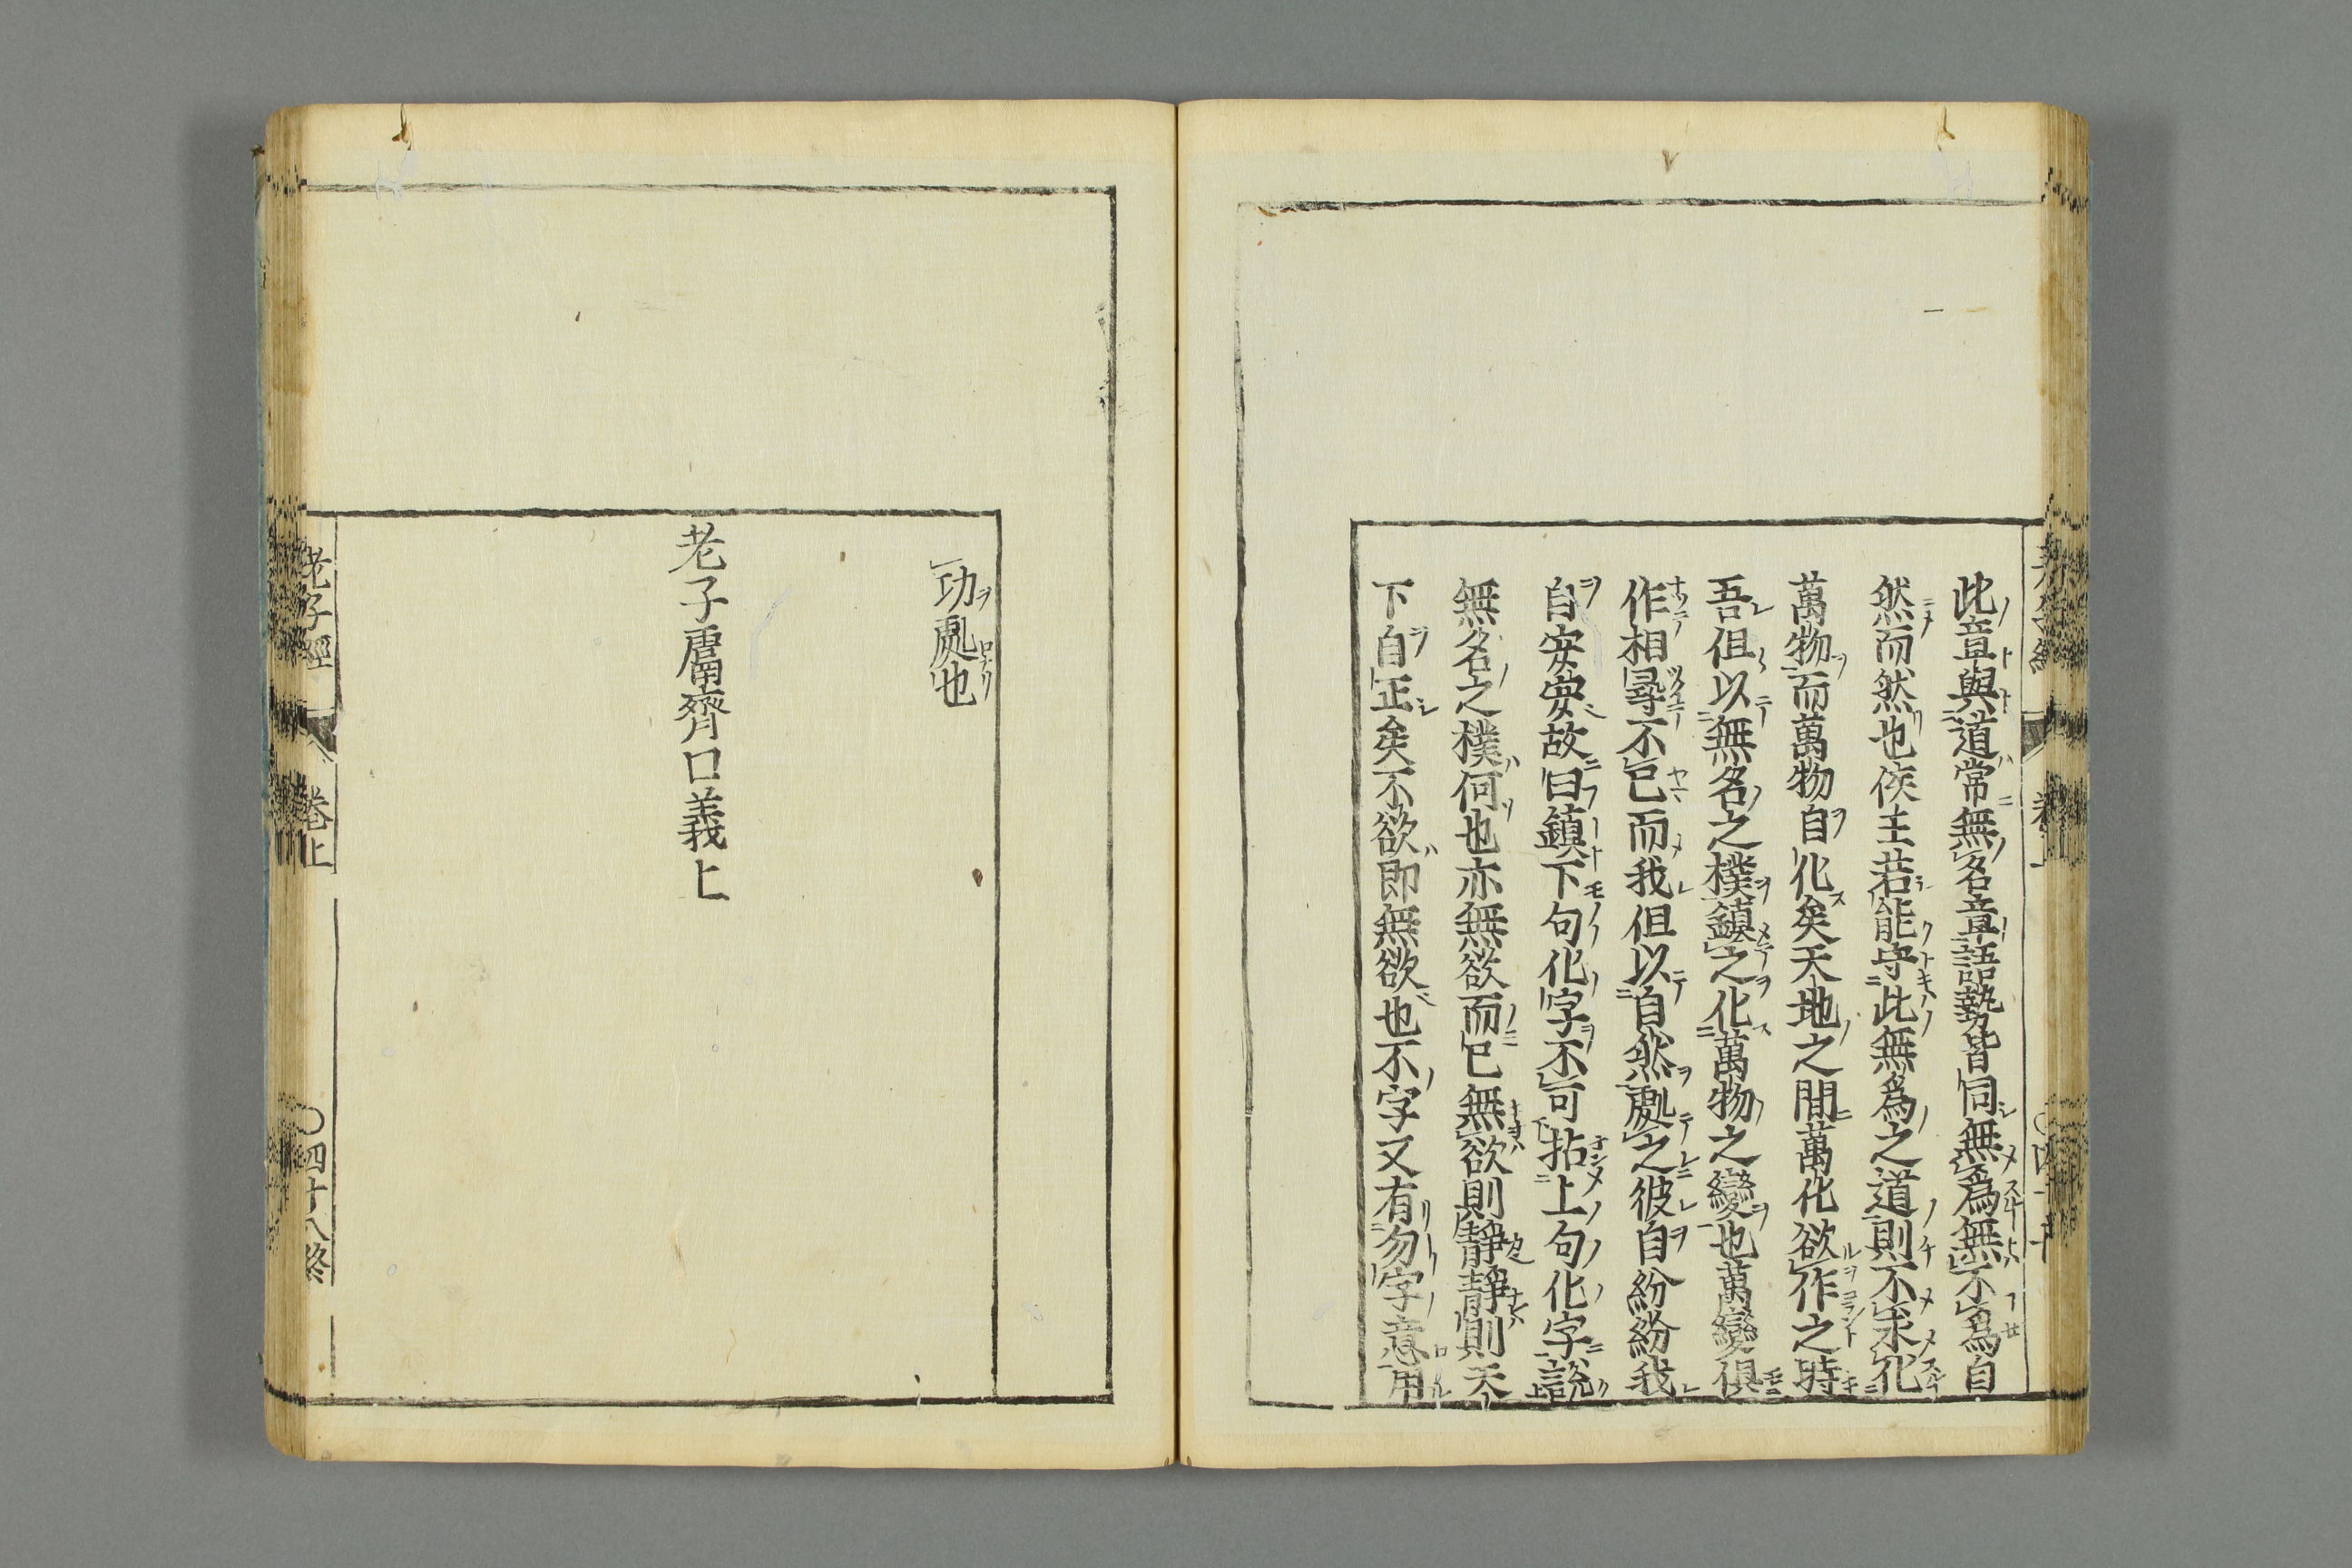 此章與道常無名章語勢皆同無爲無不爲自
然而然也侯王若能守此無爲之道則不求化
萬物而萬物自化矣天地之間萬化欲作之時
吾但以無名之樸鎮之化萬物之變也萬變俱
作相尋不已而我但以自然處之彼自紛紛我
自安安故曰鎮下句化字不可拈上句化字說
無名之樸何也亦無欲而已無欲則靜靜則天
下自正矣不欲即無欲也不字又有勿字意用
功處也
老子鬳齋口義上
老子經 卷上 〇四十八終